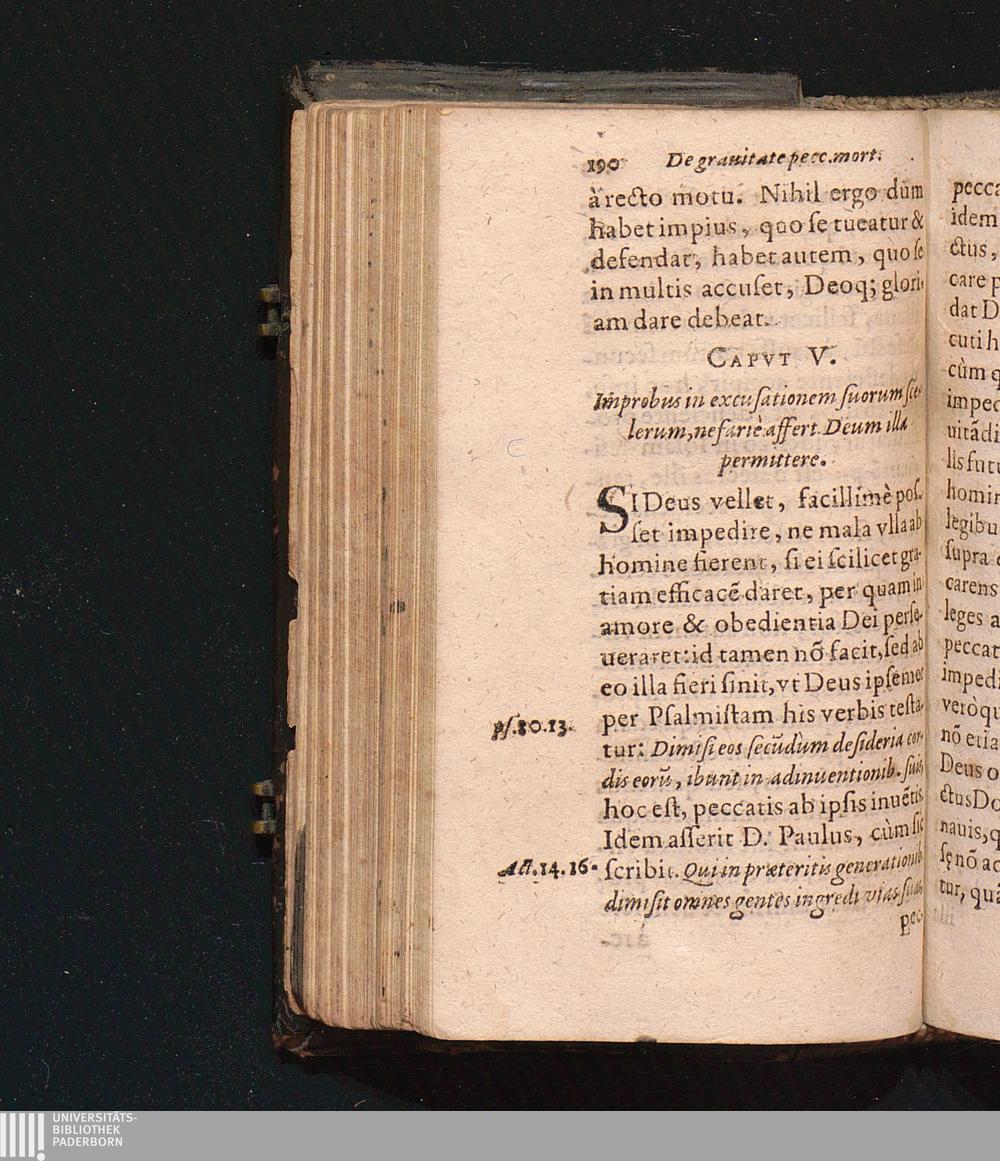 190 De grauitate pecc. mort.
à recto motu. Nihil ergo dum
habet impius, quo se tueatur &
defendat, habet autem, quo se
in multis accuset, Deoq; glori-
am dare debeat.
CAPVT V.
Improbus in excusationem suorum sce-
lerum, nefariè affert Deum illa
permittere.
SI Deus vellet, facillimè pos-
set impedire, ne mala vlla ab
homine fierent, si ei scilicet gra-
tiam efficacẽ daret, per quam in
amore & obedientia Dei perse-
ueraret: id tamen nõ facit, sed ab
eo illa fieri sinit, vt Deus ipsemet
ps. 80. 13. per Psalmistam his verbis testa-
tur: Dimisi eos secũdùm desideria cor-
dis eorũ, ibunt in adinuentionib. suis,
hoc est, peccatis ab ipsis inuẽtis.
Idem asserit D. Paulus, cùm sic
Act. 14. 16. scribit. Qui in præteritis generationib.
dimisit omnes gentes ingredi vias suas
pec-
pecca
idem
ctus,
care p
dat D
cuti h
cùm q
impec
uitãdi
lis futu
homin
legibu
supra
carens
leges a
peccat
impedi
verò qu
nõ etia
Deus o
ctus Do
nauis, q
sę nõ ac
tur, quã
UNIVERSITÄTS-
BIBLIOTHEK
PADERBORN